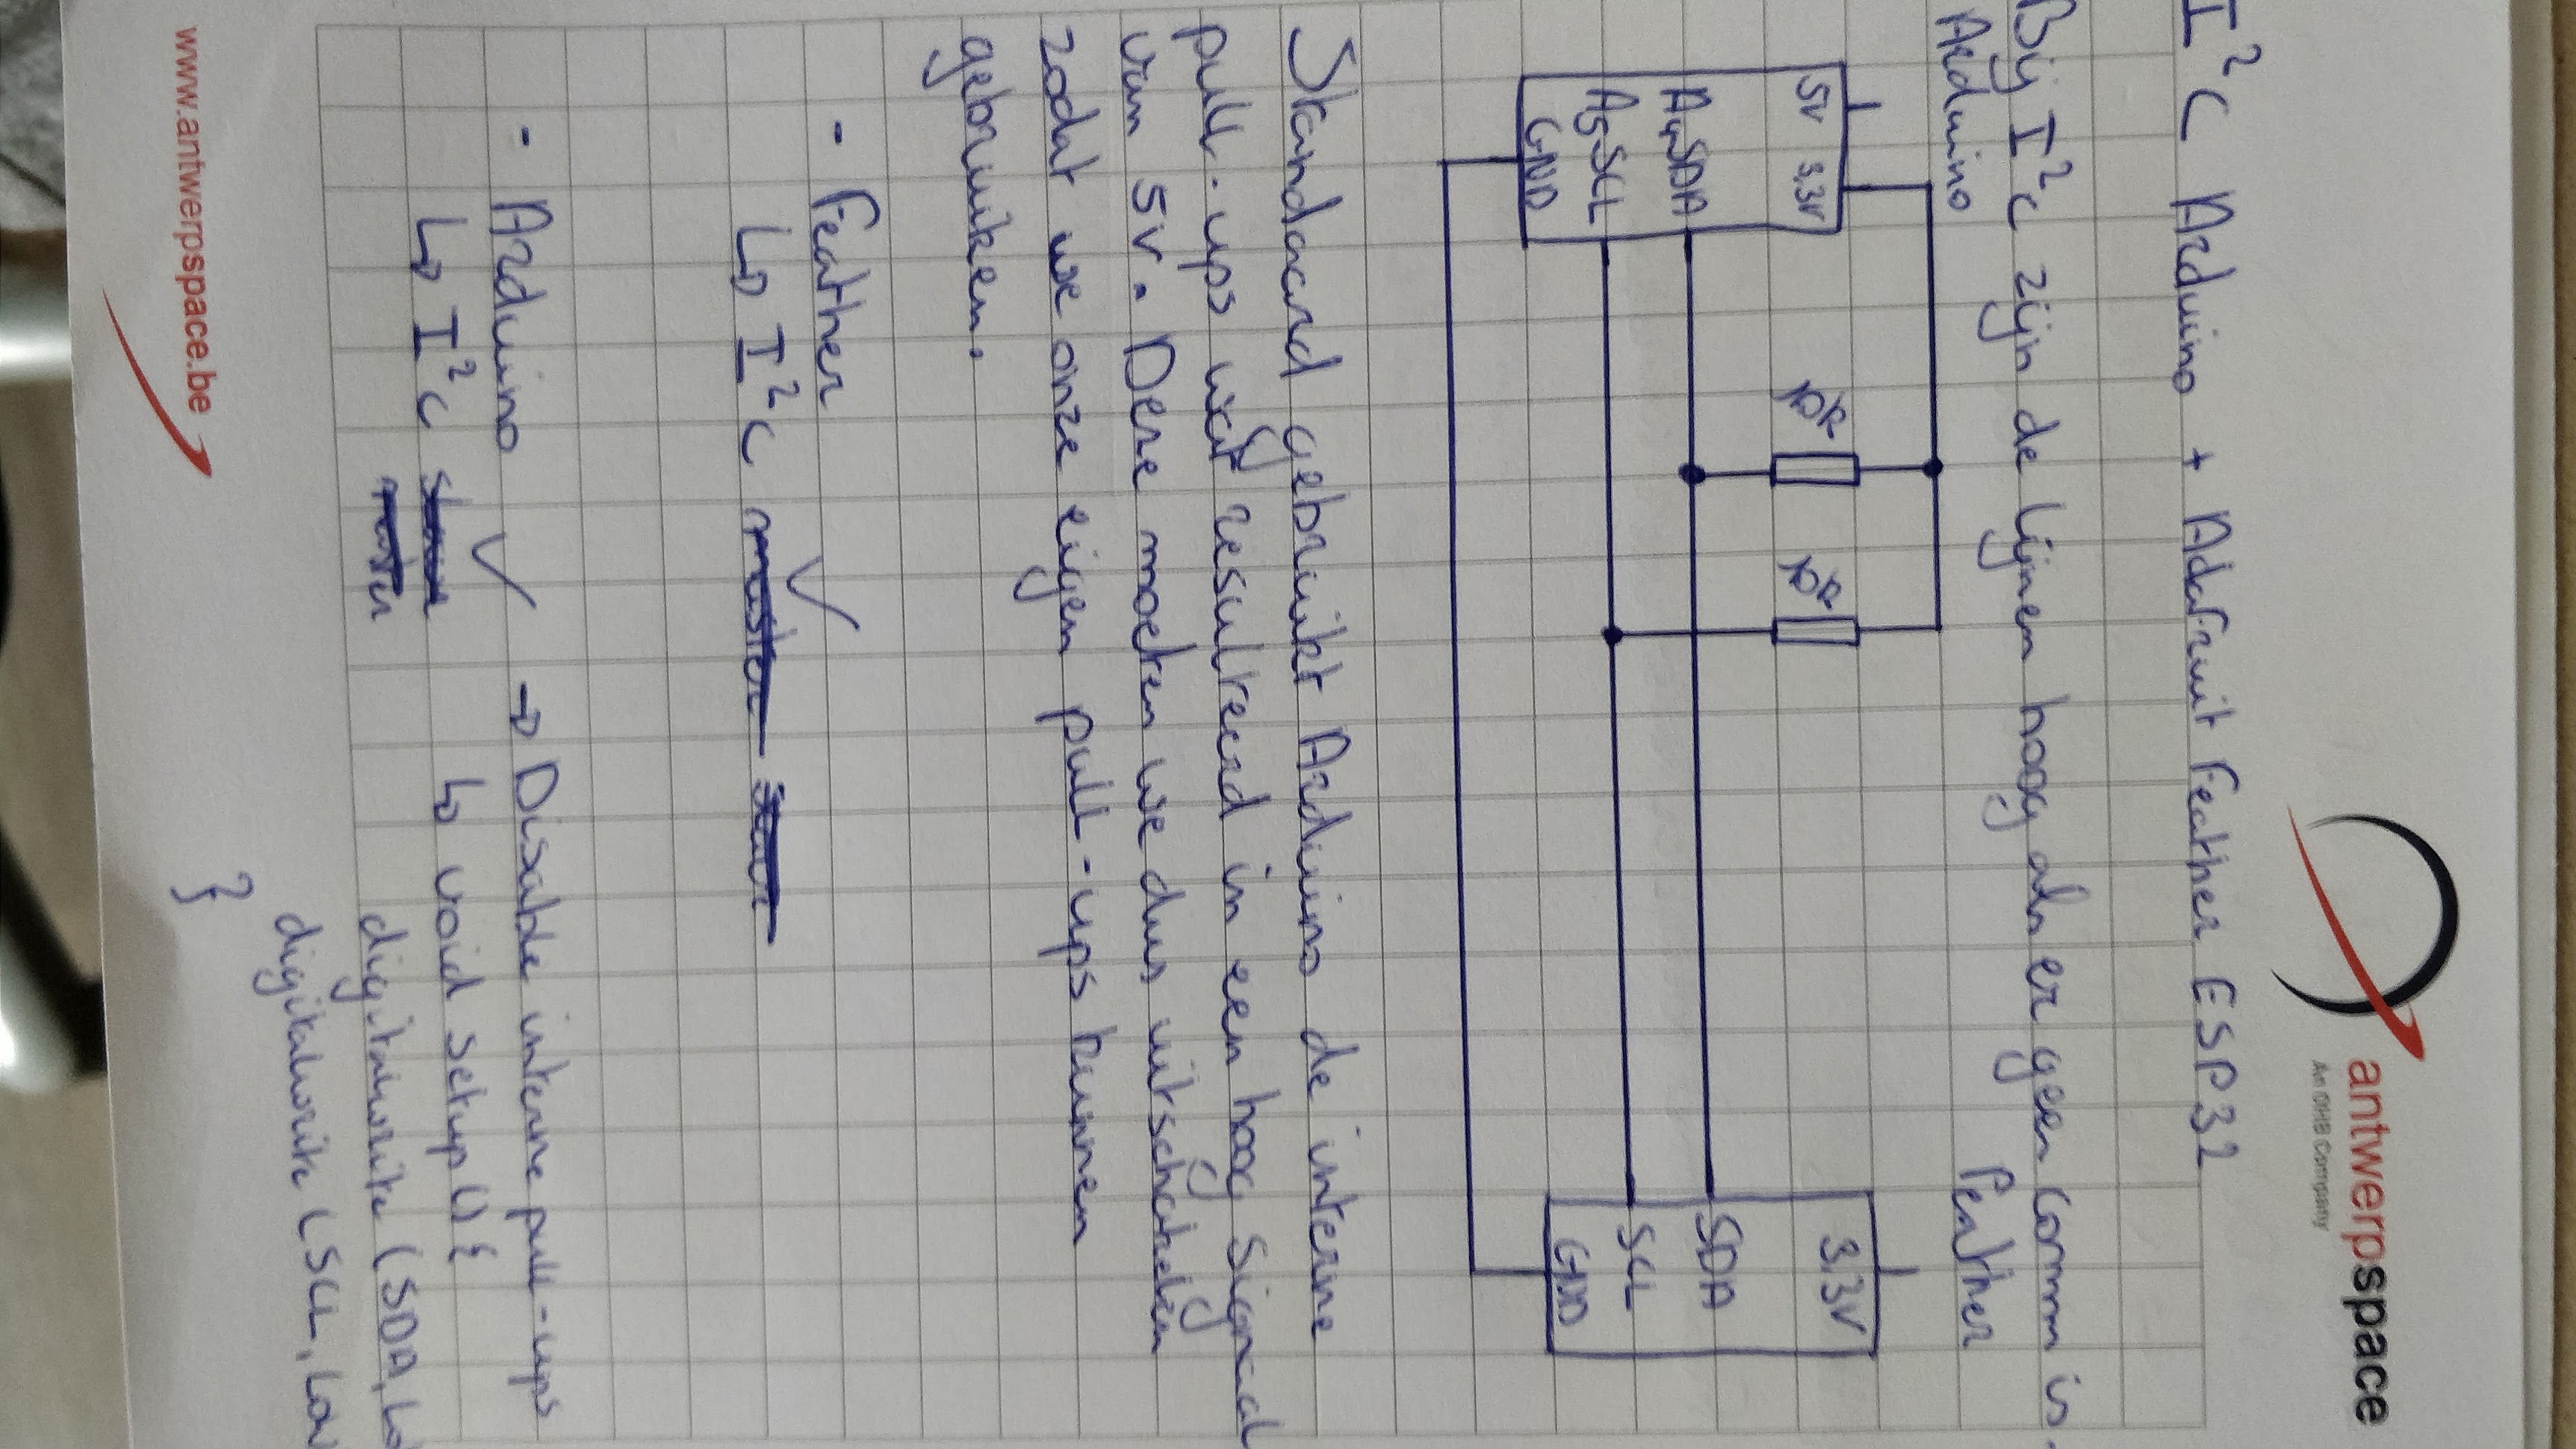 antwerpspace
An OHB Company
I²C Arduino + Adafruit Feather ESP32
Bij I²C zijn de lijnen hoog als er geen comm is.
Arduino
Feather
5V 3.3V
A4 SDA
A5 SCL
GND
10k
10k
3.3V
SDA
SCL
GND
Standaard gebruikt Arduino de interne
pull-ups wat resulteerd in een hoog signaal
van 5V. Deze moeten we dus uitschakelen
zodat we onze eigen pull-ups kunnen
gebruiken.
- Feather ✓
↳ I²C master slave
- Arduino ✓ → Disable interne pull-ups
↳ I²C slave ↳ void setup() {
master digitalwrite (SDA, Lo
digitalwrite (SCL, Low
}
www.antwerpspace.be